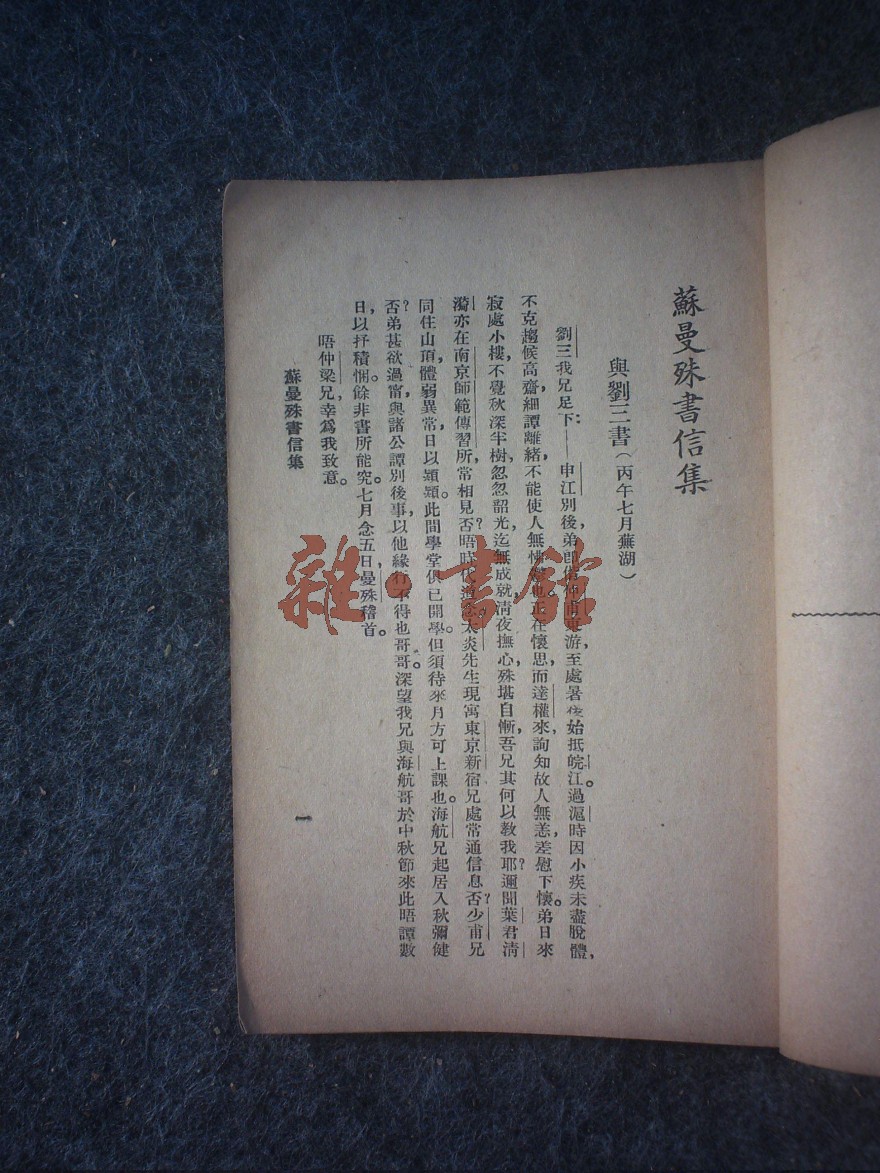 蘇曼殊書信集
與劉三書(丙午七月蕪湖)
劉三我兄足下:——申江別後,弟卽偕仲甫東游,至處暑後始抵皖江。過滬時因小疾未盡脫體,
不克趨候高齋,細譚離緒,不能使人無悵也。正在懷思,而達權來,詢知故人無恙,差慰下懷。弟日來
寂處小樓,不覺秋深半樹,忽忽韶光,迄無成就,淸夜撫心,殊堪自慚,吾兄其何以敎我耶?邇聞葉君淸
漪亦在南京師範傳習所,常相見否?晤時代道念。太炎先生現寓東京新宿,兄處常通信息否?少甫兄
同住山頂,體弱異常,日以頴頴。此間學堂俱已開學,但須待來月方可上課也。海航兄起居入秋彌健
否?弟甚欲過甯與諸公譚別後事,以他緣行不得也哥哥。深望我兄與海航哥於中秋節來此晤譚數
日,以抒積悃。餘非書所能究。七月念五日曼殊稽首。
晤仲梁兄,幸爲我致意。
蘇曼殊書信集
一
雜·書館